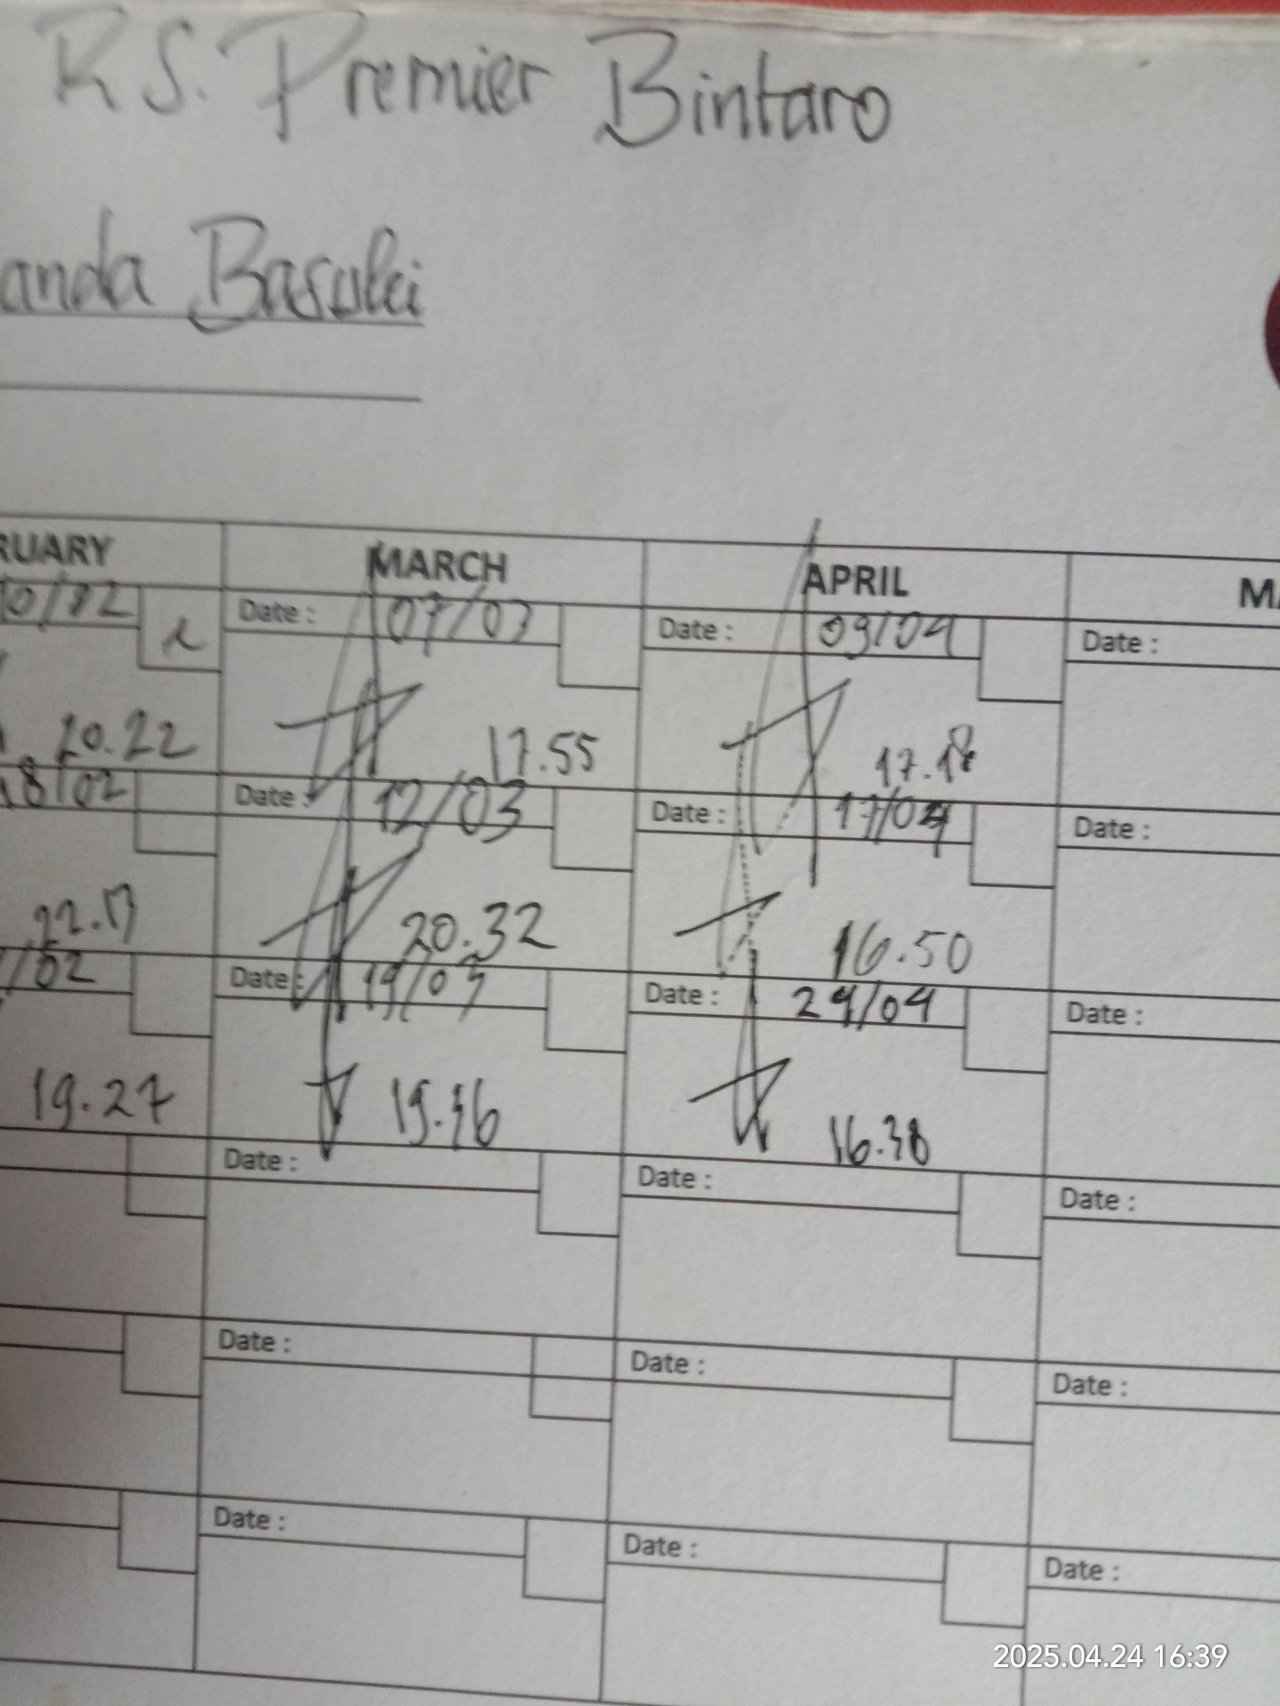 R.S. Premier Bintaro
anda Basuki
RUARY MARCH APRIL MA
0/02 Date : 07/03 Date : 09/04 Date :
20.22 17.55 17.18
18/02 Date : 12/03 Date : 17/04 Date :
22.17 20.32 16.50
/02 Date : 19/03 Date : 24/04 Date :
19.27 19.36 16.38
Date : Date : Date :
Date : Date : Date :
Date : Date : Date :
2025.04.24 16:39